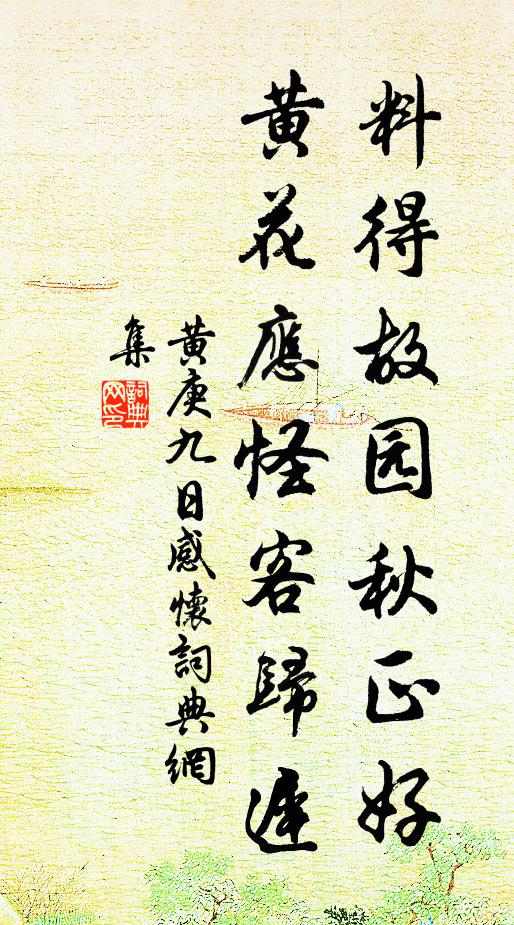 料得故园秋正好
黄花應怪客歸遲
黄庚九日感懷詞典網
集
詞典
网印